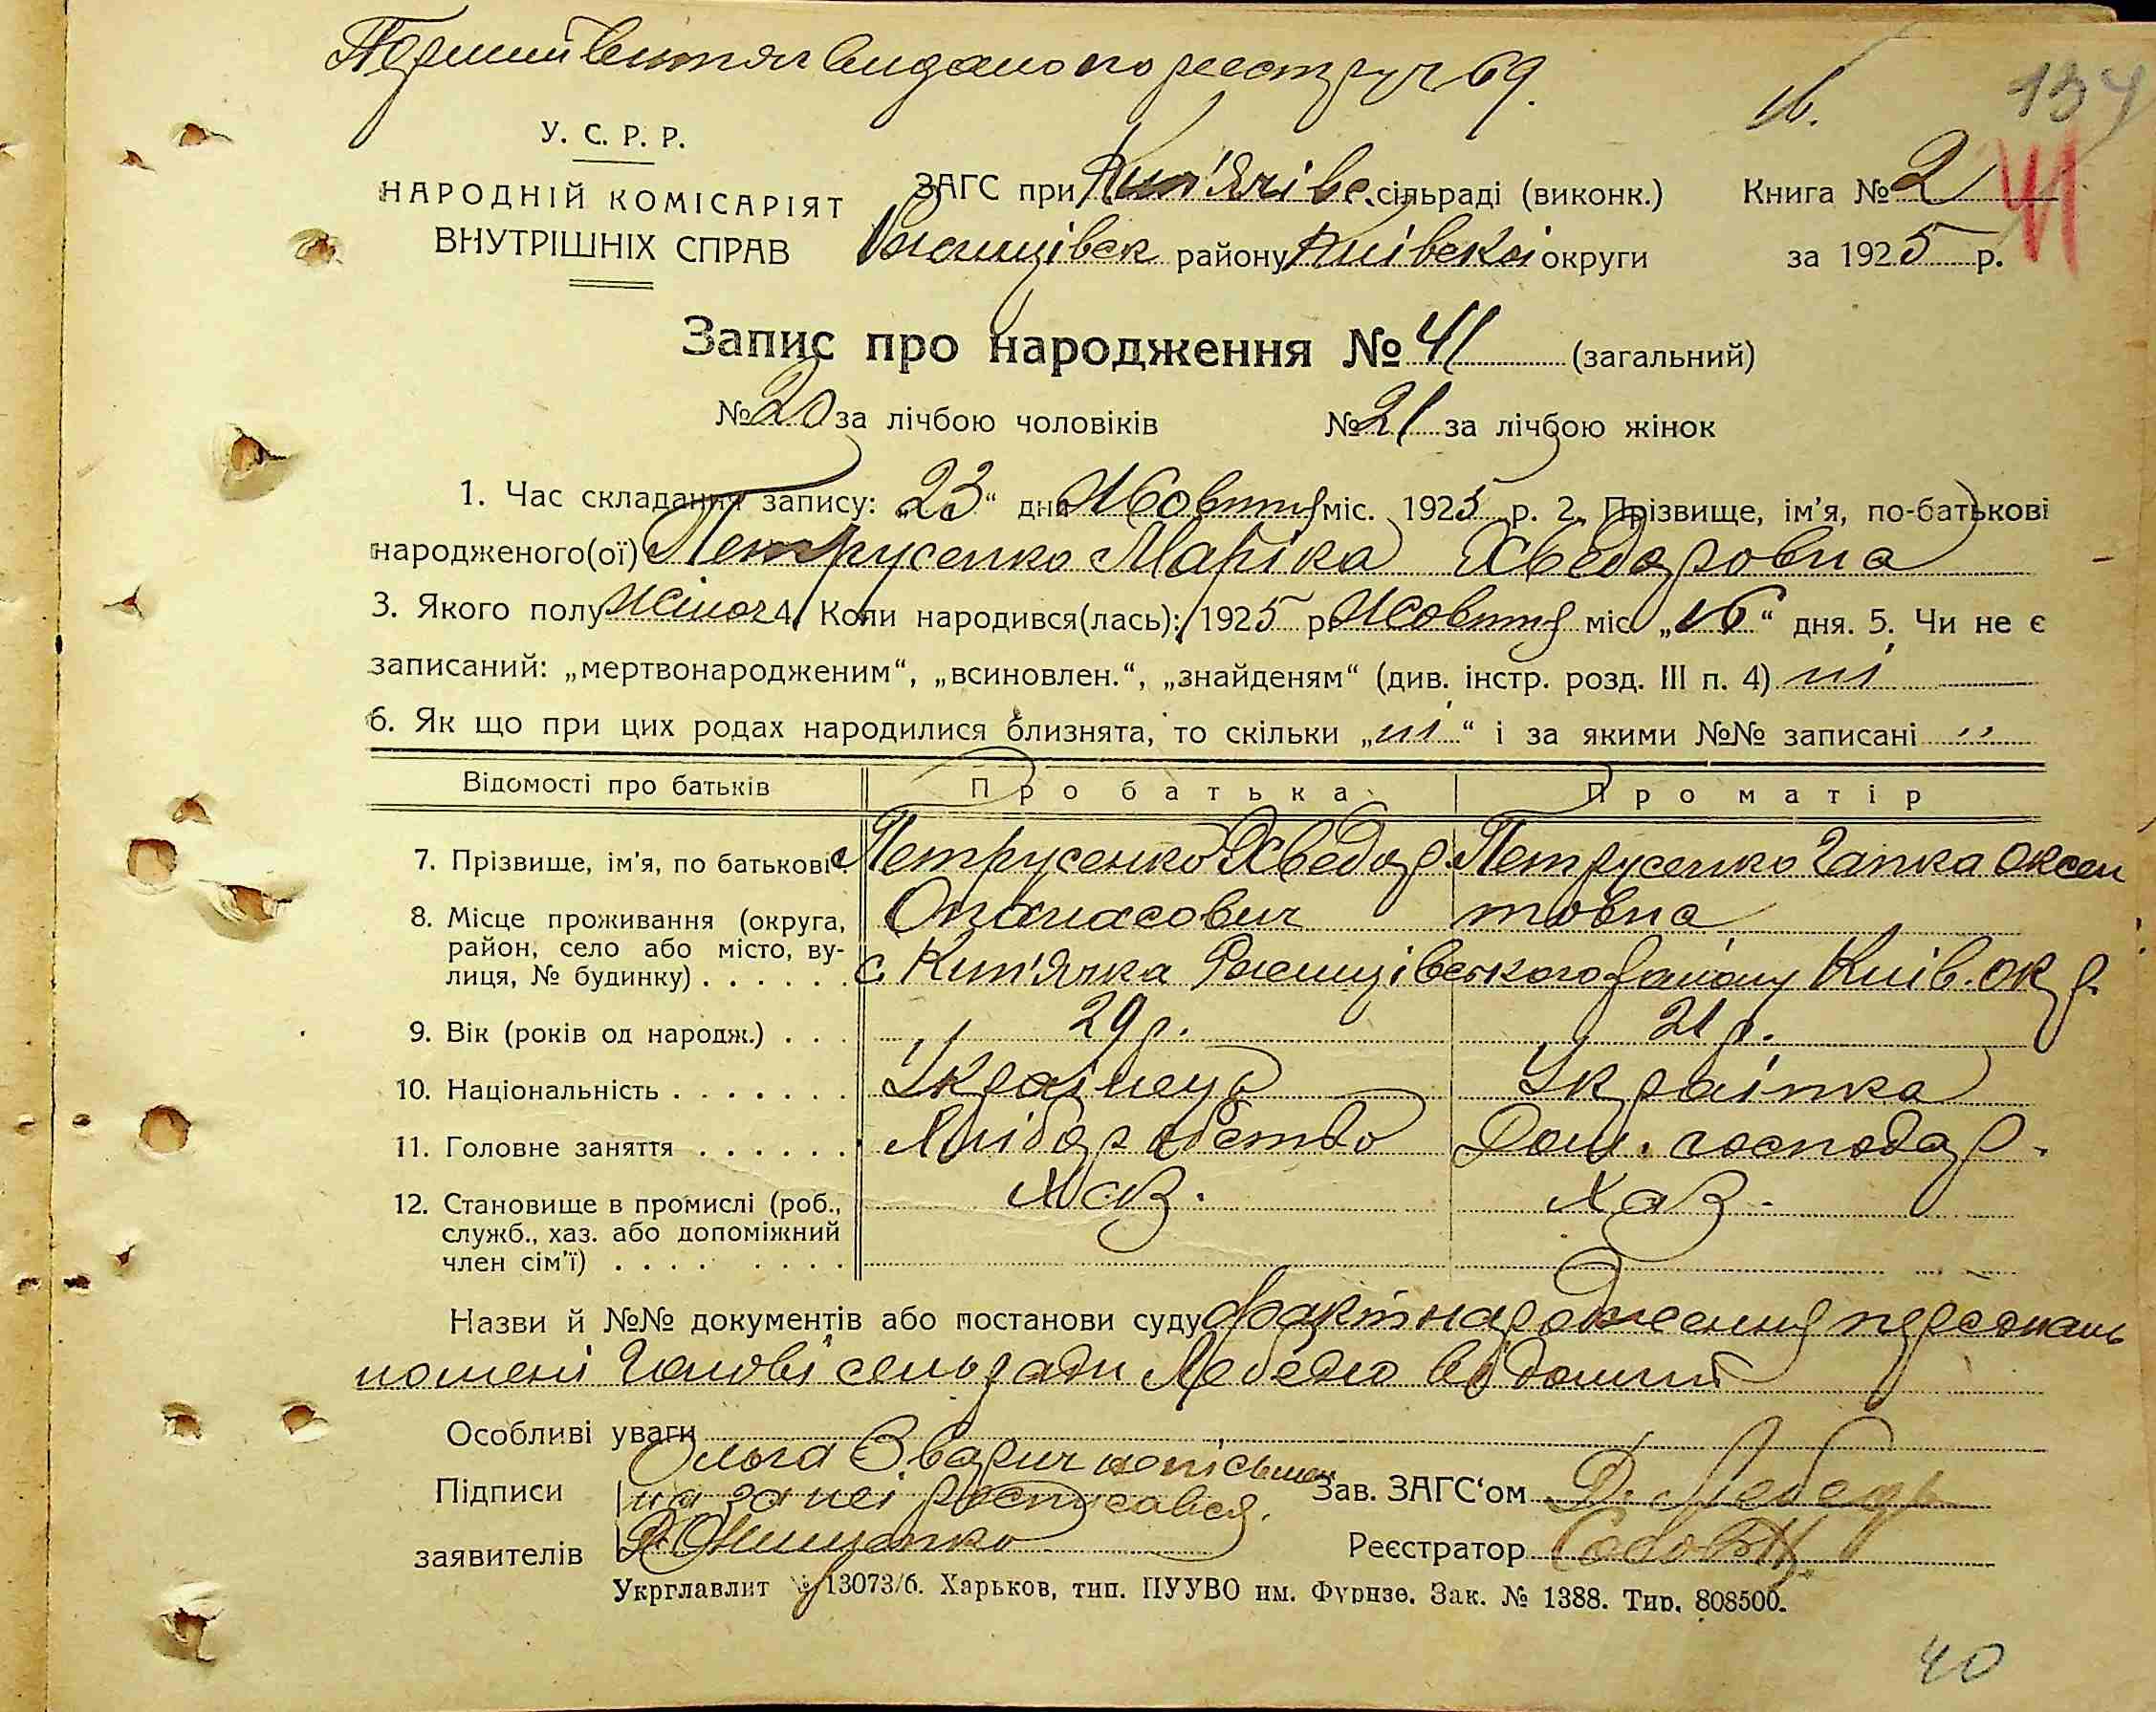 Перший витяг видано по реєстру ч 69.
16. 134
У. С. Р. Р.
НАРОДНІЙ КОМІСАРІЯТ
ВНУТРІШНІХ СПРАВ
ЗАГС при Кип'ячівс. сільраді (виконк.) Книга № 2 41
Ржищівськ району Київської округи за 1925 р.
Запис про народження № 41 (загальний)
№ 20 за лічбою чоловіків № 21 за лічбою жінок
1. Час складання запису: „23“ дня Жовтня міс. 1925 р. 2. Прізвище, ім'я, по-батькові
народженого(ої) Петрусенко Маріка Хведоровна
3. Якого полу жіноч 4. Коли народився(лась): 1925 р. Жовтня міс. „16“ дня. 5. Чи не є
записаний: „мертвонародженим“, „всиновлен.“, „знайденям“ (див. інстр. розд. III п. 4) ні
6. Як що при цих родах народилися близнята, то скільки „ні“ і за якими №№ записані „
Відомості про батьків Про батька Про матір
7. Прізвище, ім'я, по батькові Петрусенко Хведор Петрусенко Гапка Оксен
Опанасович товна
8. Місце проживання (округа,
район, село або місто, ву-
лиця, № будинку) . . . . . . с. Кип'ячка Ржищівського району Київ. окр.
9. Вік (років од народж.) . . . 29 р. 21 р.
10. Національність . . . . . . . Українець Українка
11. Головне заняття . . . . . . Хліборобство Дом. господар.
12. Становище в промислі (роб., Хаз. Хаз.
служб., хаз. або допоміжний
член сім'ї) . . . . . . . .
Назви й №№ документів або постанови суду факт народження персональ
но мені Голові сельради Лебедю відомий
Особливі уваги
Підписи Ольга Зварич неписьмен
на за неї росписався.
Зав. ЗАГС'ом Д. Лебедь
заявителів Онищенко Реєстратор
Укрглавлит № 13073/б. Харьков, тип. ПУУВО им. Фрунзе. Зак. № 1388. Тир. 808500.
40